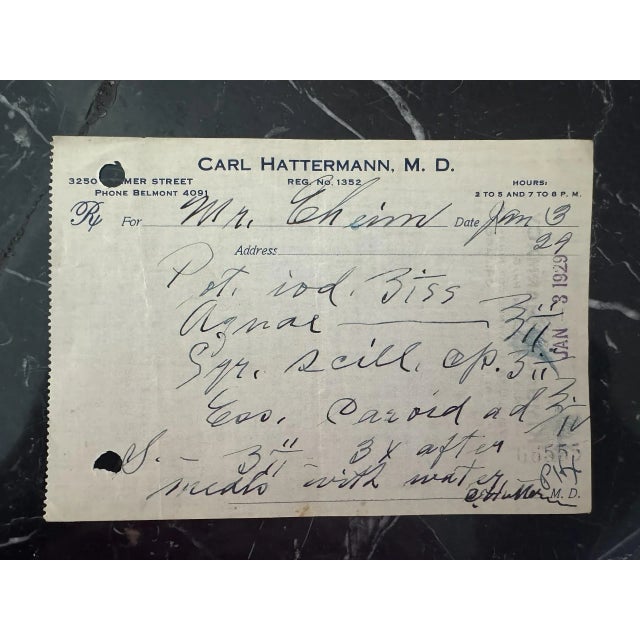 CARL HATTERMANN, M. D.
3250 MER STREET REG. NO. 1352 HOURS:
PHONE BELMONT 4091 2 TO 5 AND 7 TO 8 P. M.
℞ For Mr. Cheim Date Jan 3
Address 29
JAN 3 1929
Pot. iod. ʒiss
Aquae ʒii
Syr. scill. cp. ʒii
Ess. Caroid ad ʒiv
S. – ʒii – 3x after
meals with water
M. D.